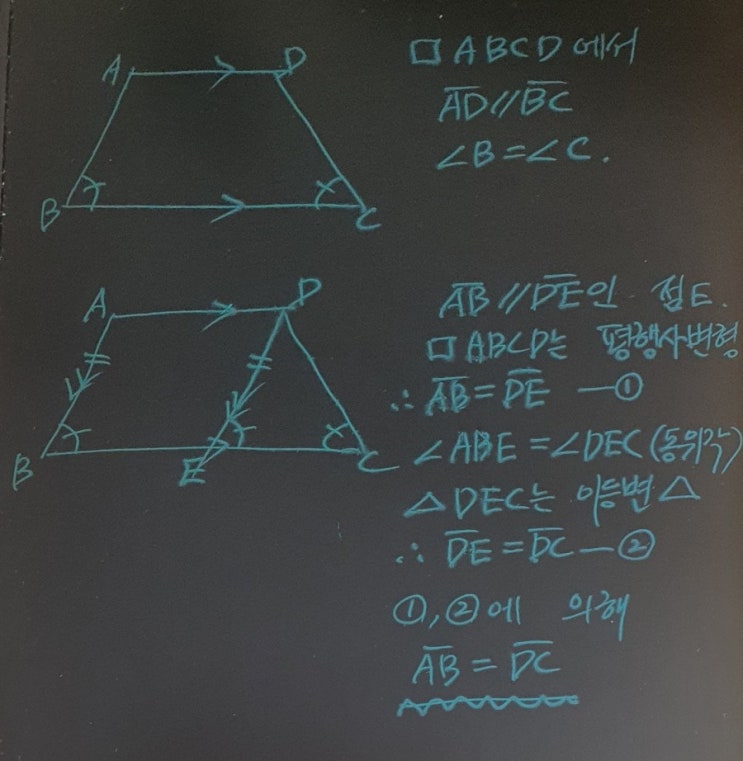 A D
B C
□ABCD에서
AD//BC
∠B=∠C.
A D
B E C
AB//DE인 점E.
□ABCD는 평행사변형
∴ AB=DE —①
∠ABE=∠DEC(동위각)
△DEC는 이등변△
∴ DE=DC—②
①,②에 의해
AB=DC